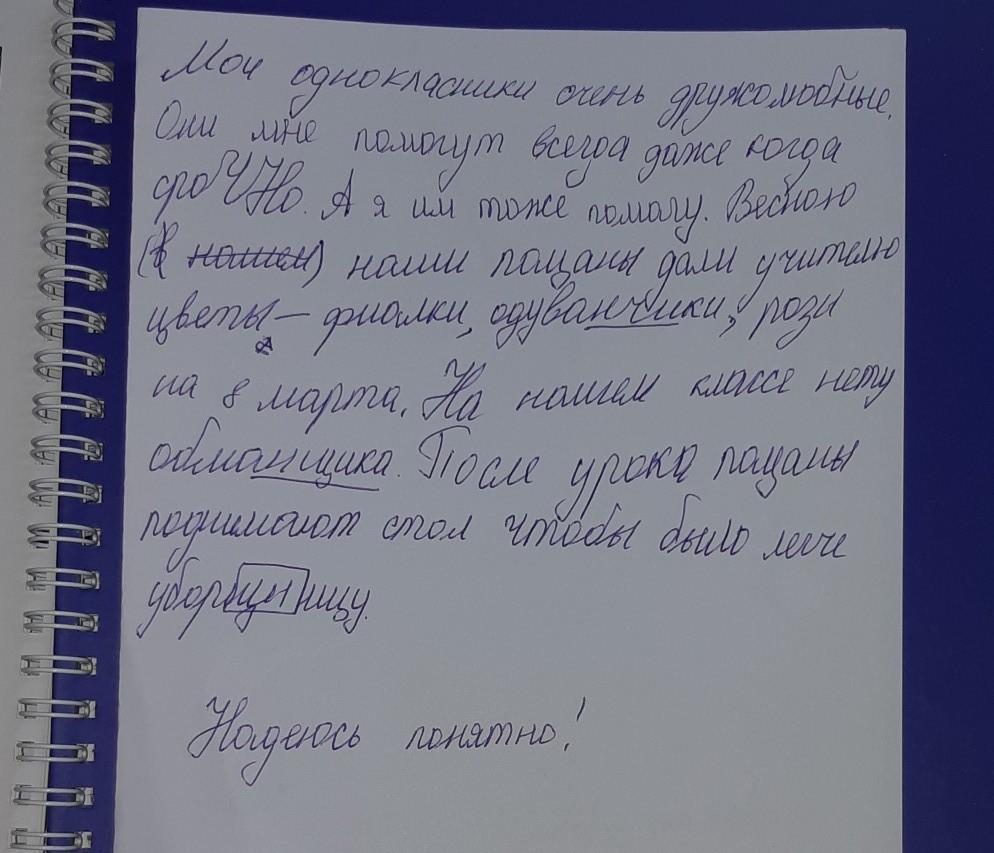 Мои однокласники очень дружомобные.
Они мне помогут всегда даже когда
сроЧНо. А я им тоже помагу. Весною
(В нашем) наши пацаны дали учителю
цветы — фиалки, одуванчики, розы
на 8 марта. На нашем классе нету
обманщика. После урока пацаны
поднимают стол чтобы было легче
уборщинницу.
Надеюсь понятно!